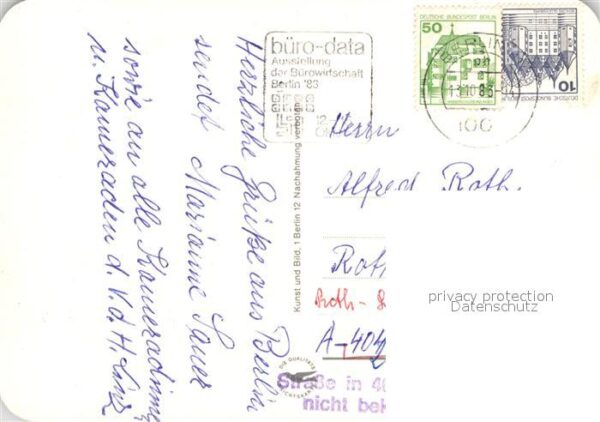 Herzliche Grüße aus Berlin
sendet Marianne Sauer
sowie an alle Kameradinnen
u. Kameraden d. V.d.H. Linz
Kunst und Bild, 1 Berlin 12 Nachahmung verboten
büro-data
Ausstellung
der Bürowirtschaft
Berlin '83
DEUTSCHE BUNDESPOST BERLIN
50
DEUTSCHE BUNDESPOST BERLIN
10
BERLIN
100
Herrn
Alfred Roth.
Roth
Roth-
A-404
Straße in 40
nicht bek
privacy protection
Datenschutz